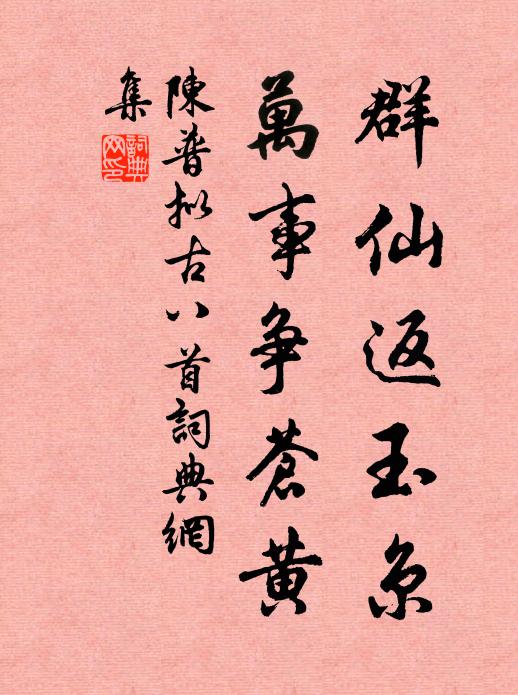 群仙返玉京
萬事争蒼黄
陳普拟古八首詞典網
集
詞典
网印